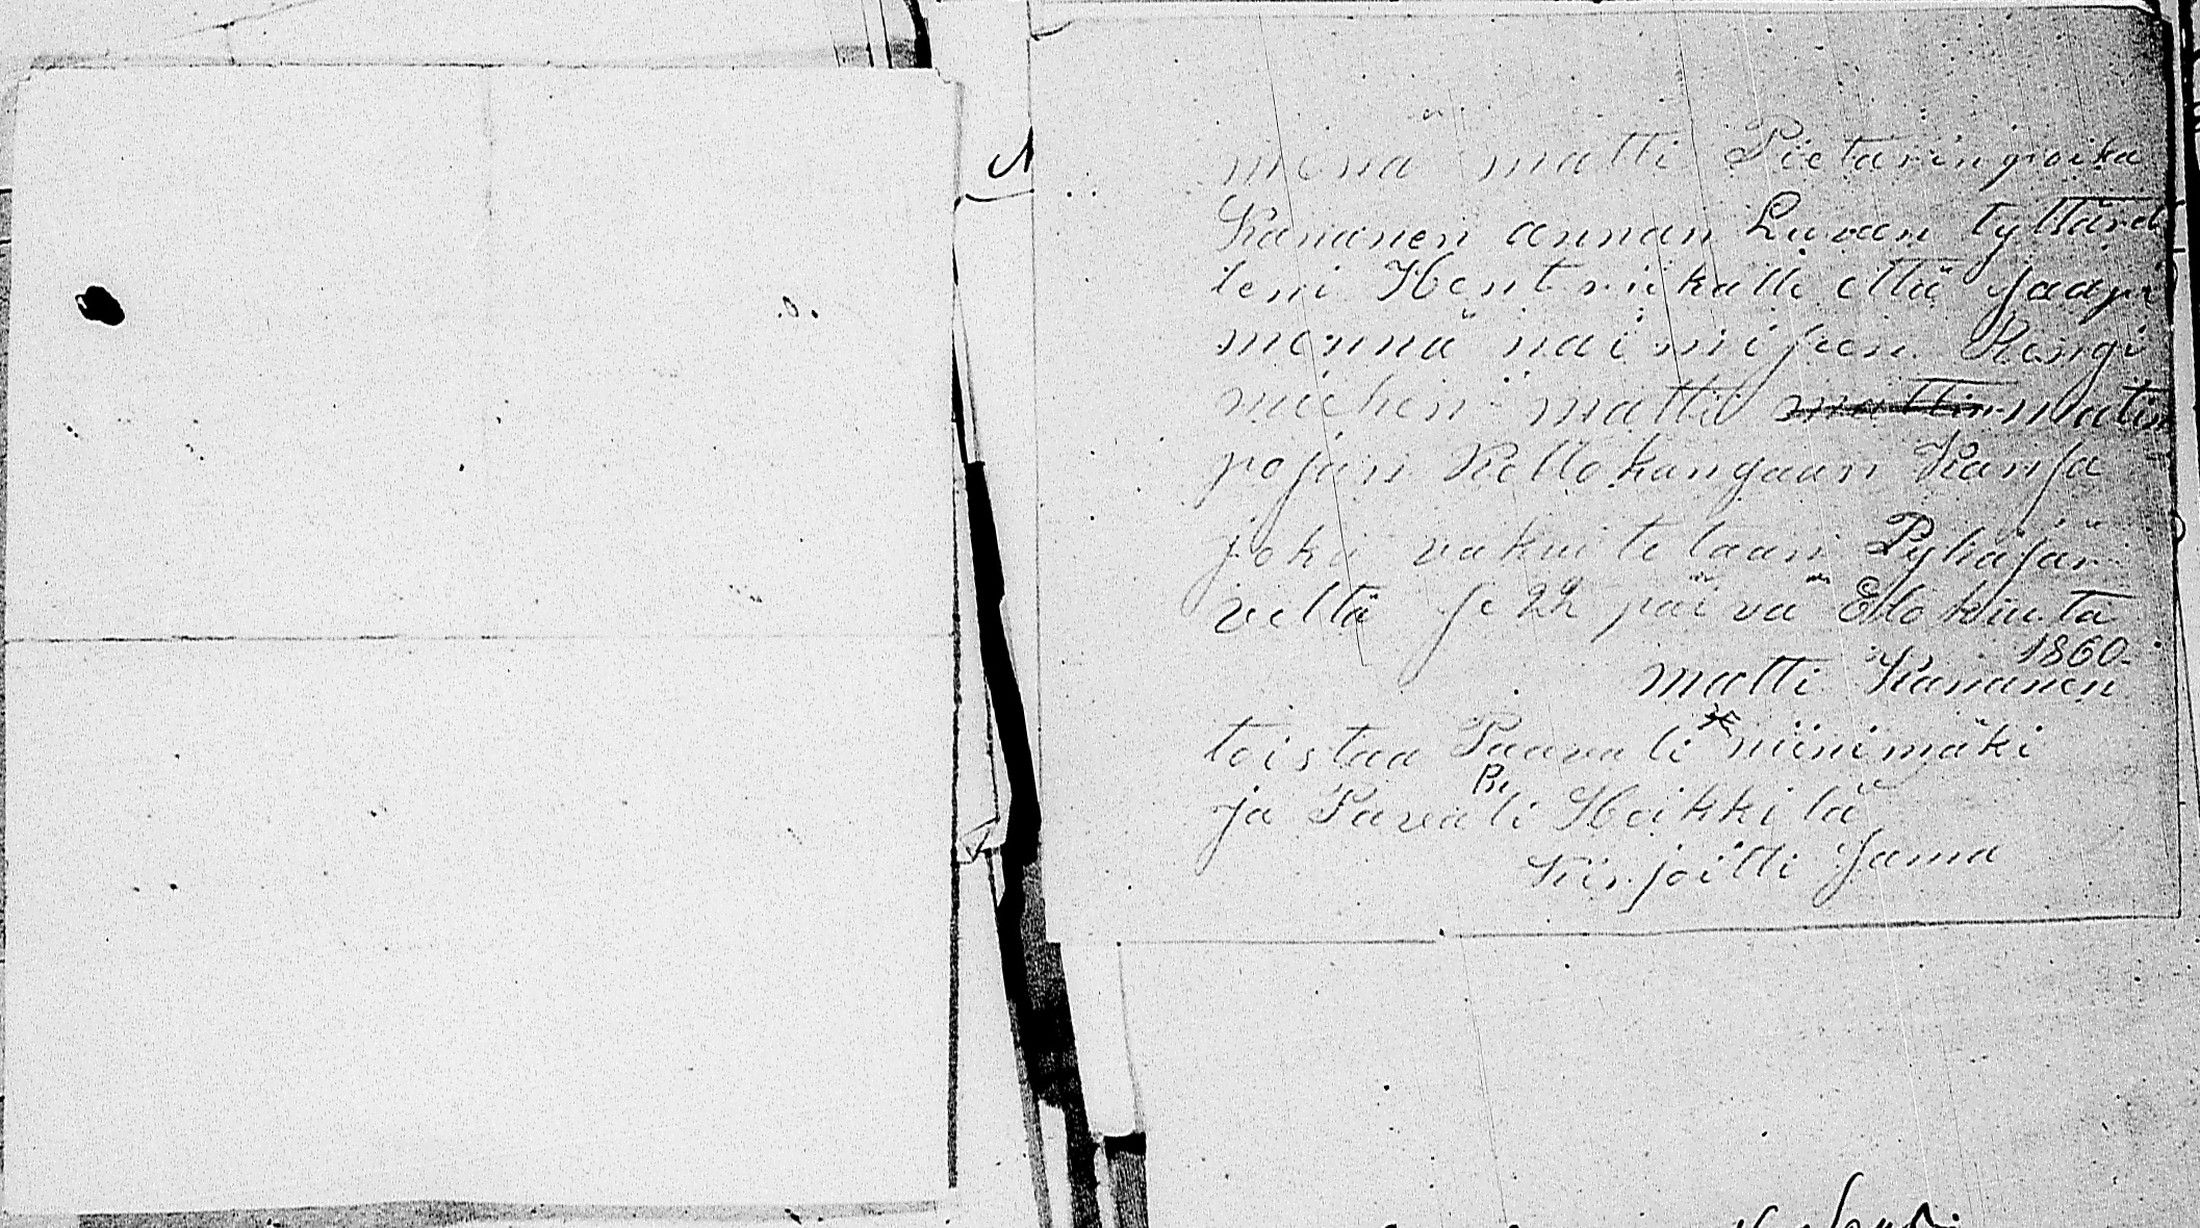 minä matti Pietarin poika
Kananen annan Luvan tyttärel
leni Hentriikalle että saapi
mennä naimiseen Rengi
miehen mattii mattin matin
pojan Kellokangaan Kansa
joka vakuutetaan Pyhäjär
veltä se 22 päivä Elokuuta
1860.
matti Kananen
toistaa Paavali niinimäki
ja Pavali Heikkilä
Kirjoitti Sama